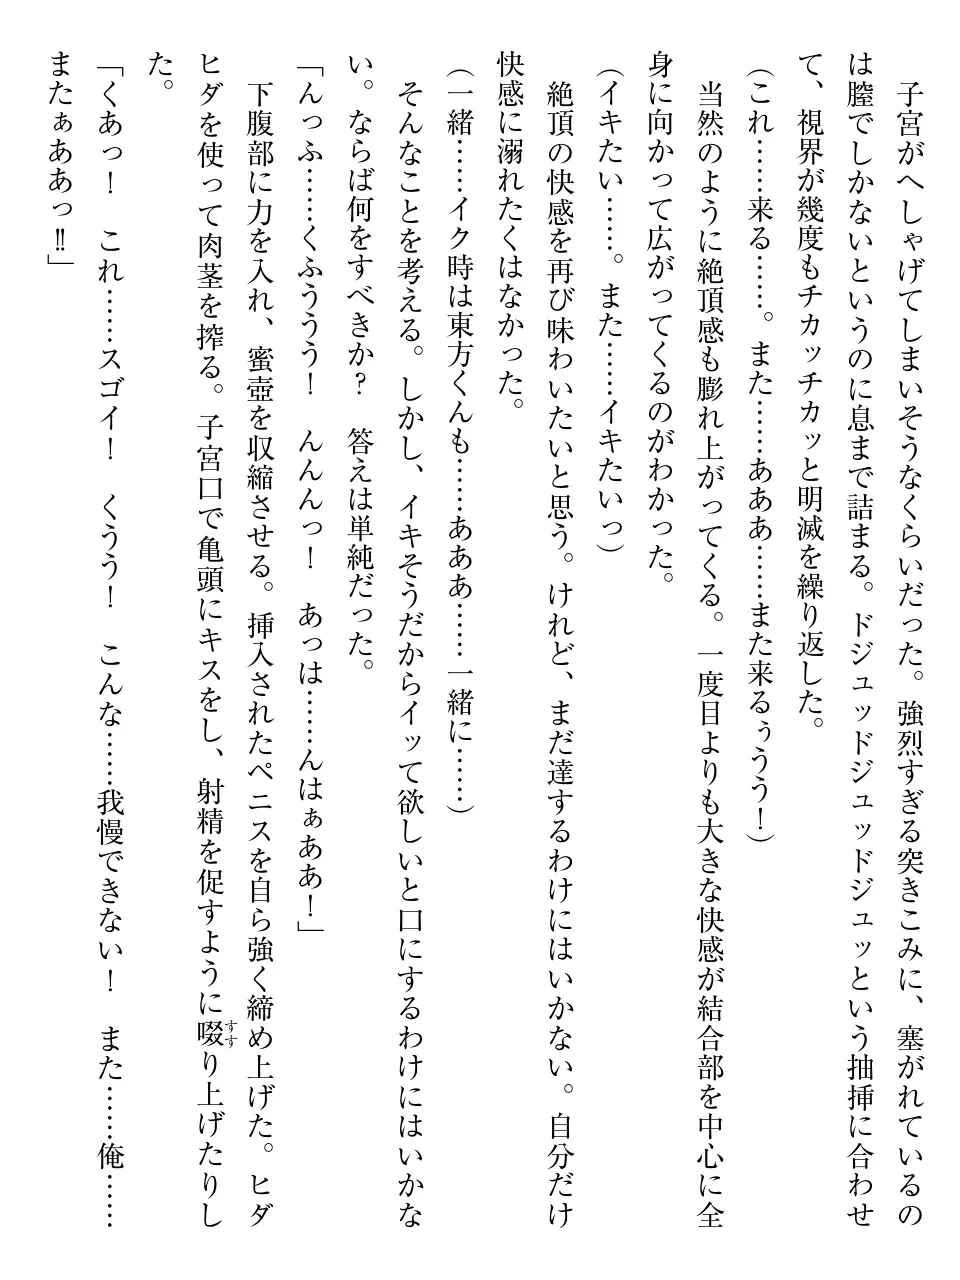 子宮がへしゃげてしまいそうなくらいだった。強烈すぎる突きこみに、塞がれているの
は膣でしかないというのに息まで詰まる。ドジュッドジュッドジュッという抽挿に合わせ
て、視界が幾度もチカッチカッと明滅を繰り返した。
(これ……来る……。また……あああ……また来るぅうう！)
　当然のように絶頂感も膨れ上がってくる。一度目よりも大きな快感が結合部を中心に全
身に向かって広がってくるのがわかった。
(イキたい……。また……イキたいっ)
　絶頂の快感を再び味わいたいと思う。けれど、まだ達するわけにはいかない。自分だけ
快感に溺れたくはなかった。
(一緒……イク時は東方くんも……あああ……一緒に……)
　そんなことを考える。しかし、イキそうだからイッて欲しいと口にするわけにはいかな
い。ならば何をすべきか？　答えは単純だった。
「んっふ……くふううう！　んんんっ！　あっは……んはぁああ！」
　下腹部に力を入れ、蜜壺を収縮させる。挿入されたペニスを自ら強く締め上げた。ヒダ
ヒダを使って肉茎を搾る。子宮口で亀頭にキスをし、射精を促すように啜り上げたりし
た。
「くあっ！　これ……スゴイ！　くうう！　こんな……我慢できない！　また……俺……
またぁああっ‼」
すす